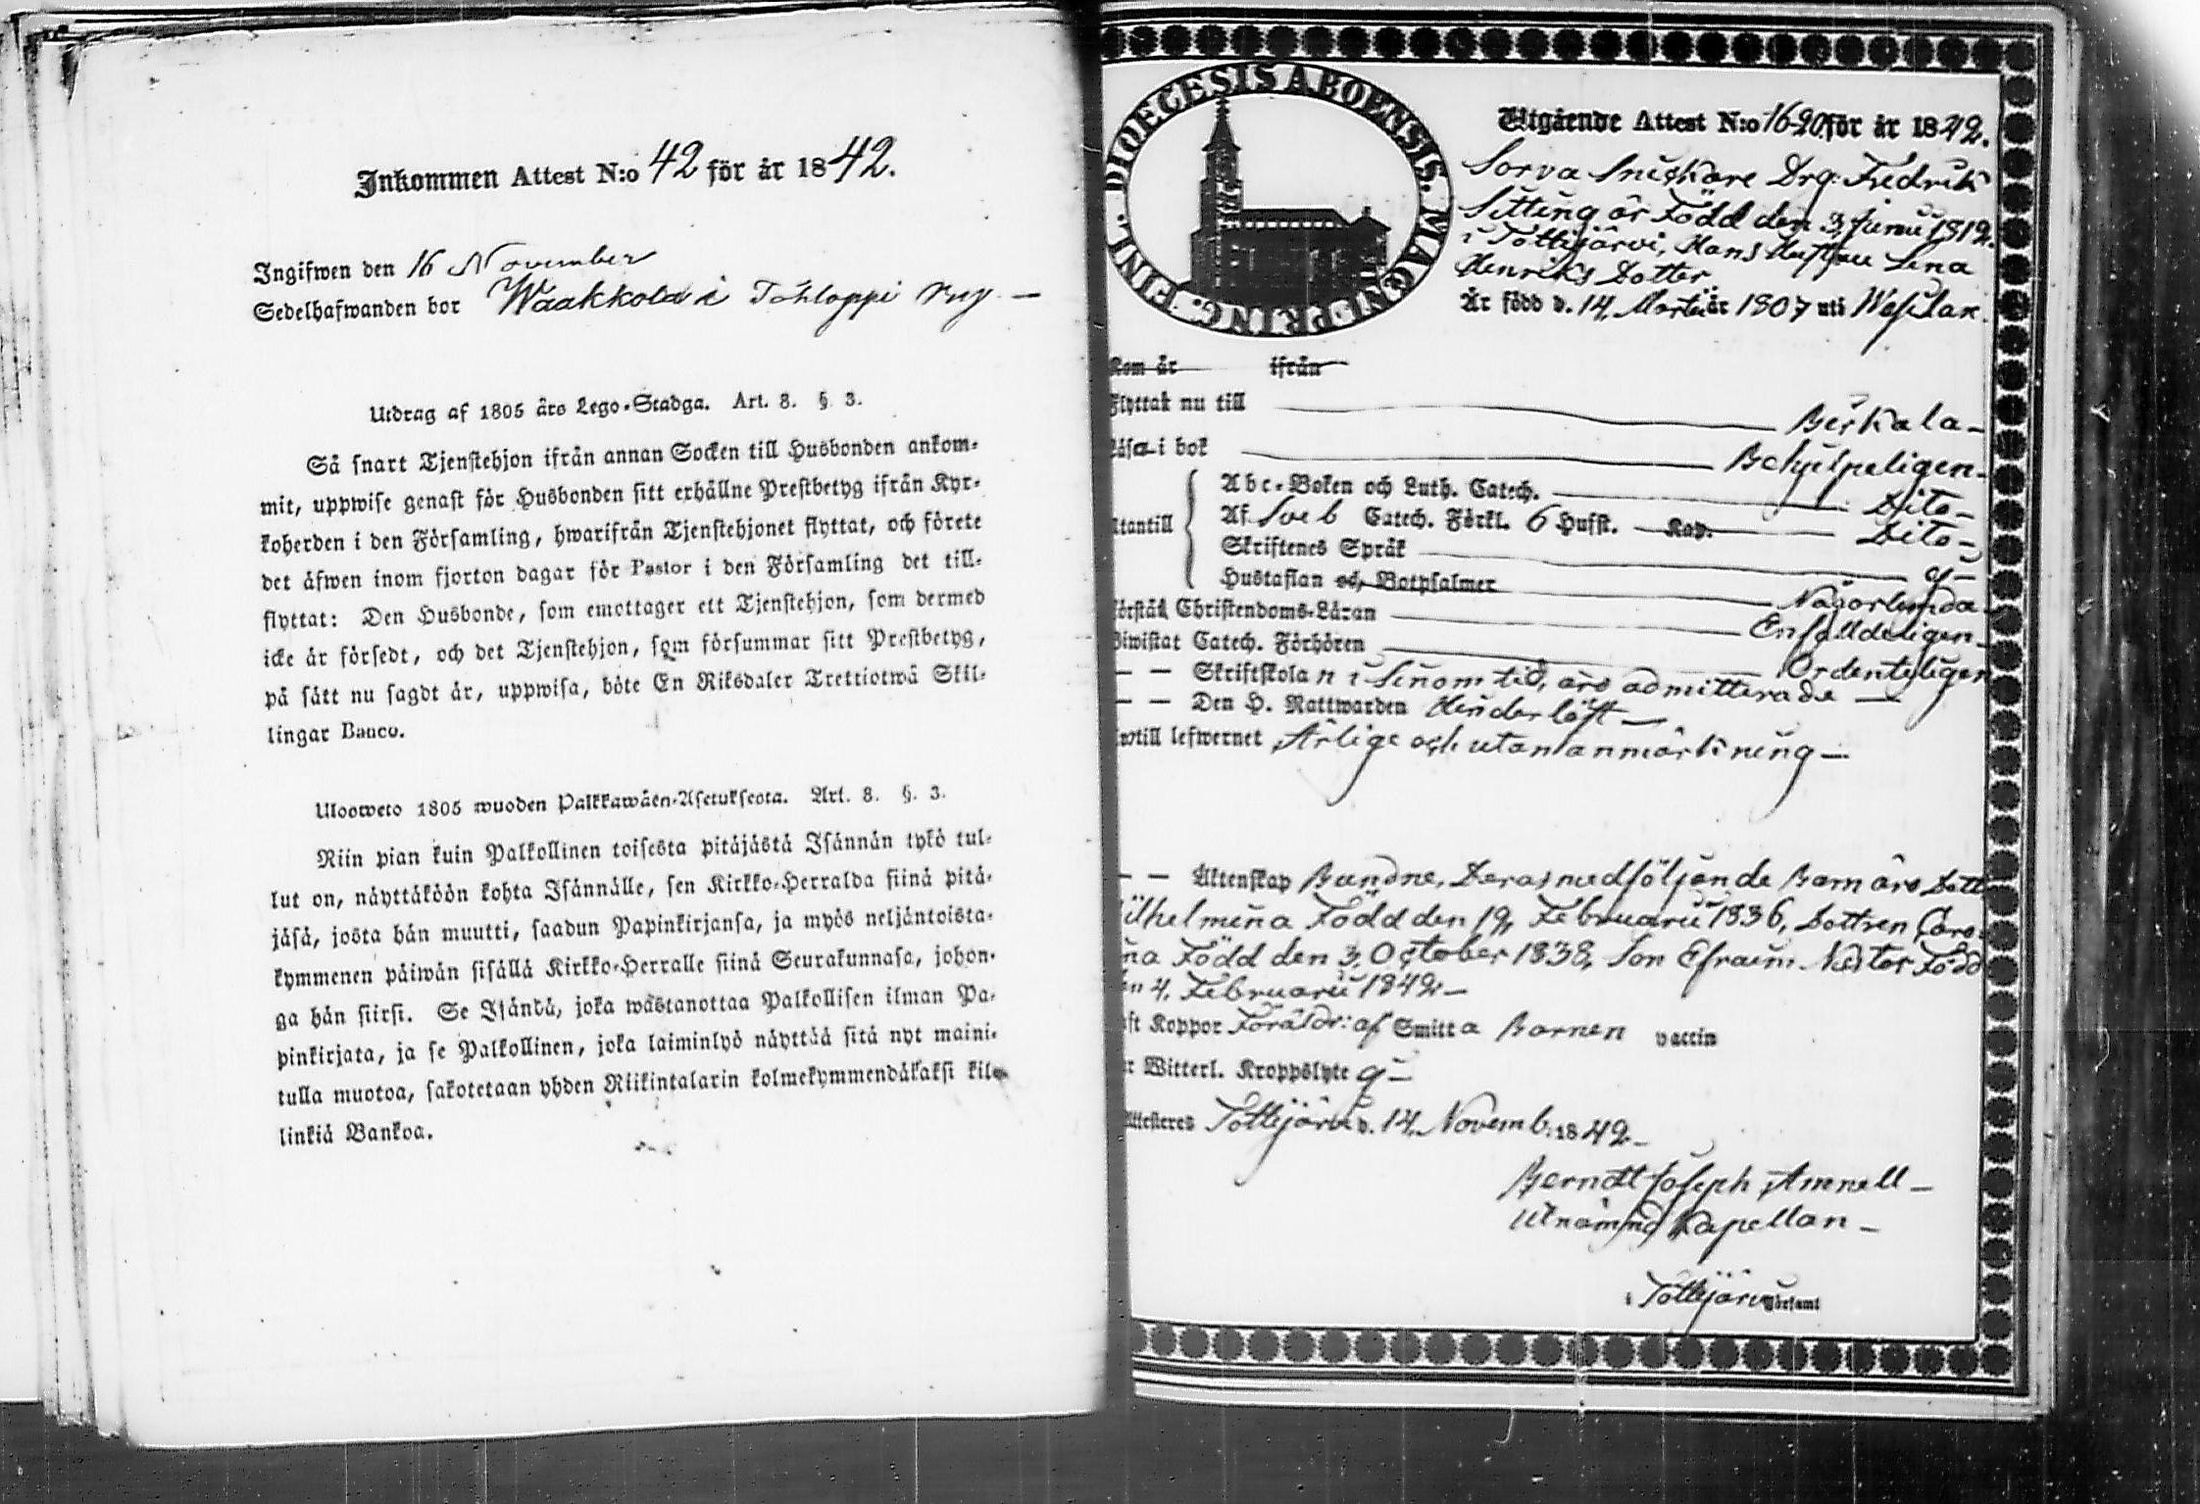 Inkommen Attest N:o 42 för år 1842.
Ingifwen den 16 November
Sedelhafwanden bor Waakkola i Tohloppi by
Utdrag af 1805 års Lego-Stadga. Art. 8. § 3.
Så snart Tjenstehjon ifrån annan Socken till Husbonden ankom-
mit, uppwise genast för Husbonden sitt erhållne Prestbetyg ifrån Kyr-
koherden i den Församling, hwarifrån Tjenstehjonet flyttat, och förete
det äfwen inom fjorton dagar för Pastor i den Församling det till-
flyttat: Den Husbonde, som emottager ett Tjenstehjon, som dermed
icke är försedt, och det Tjenstehjon, som försummar sitt Prestbetyg,
på sätt nu sagdt är, uppwisa, böte En Riksdaler Trettiotwå Skil-
lingar Banco.
Ulosweto 1805 wuoden Palkkawäen-Asetuksesta. Art. 8. §. 3.
Niin pian kuin Palkollinen toisesta pitäjästä Isännän tykö tul-
lut on, näyttäköön kohta Isännälle, sen Kirkko-Herralda siinä pitä-
jäsä, josta hän muutti, saadun Papinkirjansa, ja myös neljäntoista-
kymmenen päiwän sisällä Kirkko-Herralle siinä Seurakunnasa, johon-
ga hän siirsi. Se Isändä, joka wastanottaa Palkollisen ilman Pa-
pinkirjata, ja se Palkollinen, joka laiminlyö näyttää sitä nyt maini-
tulla muotoa, sakotetaan yhden Riikintalarin kolmekymmendäkaksi kil-
linkiä Bankoa.
DIOECESIS ABOENSIS. MAGN. PRING. FINL.
Utgående Attest N:o 16-20 för år 1842.
Sorva Snickare Drg: Fredrik
Sitting är Född den 3 Junii 1812.
i Tottijärvi, Hans Hustru Lena
Henriks Dotter
Är född d. 14. Martii år 1807 uti Wesilax.
Kom år ifrån
Flyttar nu till Birkala
Läsa i bok Behjelpeligen
Abc-Boken och Luth. Catech. Dito
Utantill Af Sveb Catech. Förkl. 6 Hufst. Kap. Dito
Skriftenes Språk ej
Hustaflan och Botpsalmer Någorlunda
Förstå Christendoms-Läran Enfalldeligen
Biwistat Catech. Förhören Ordenteligen
— — Skriftskolan i sinom tid, äro admitterade
— — Den H. Nattwarden Hinderlöst
Intill lefwernet Ärlige och utan anmärkning
— — Äktenskap Bundne, Deras medföljande Barn äro Dott
Wilhelmina Född den 19, Februarii 1836, Dottren Caro-
lina Född den 3, October 1838, Son Efraim Nestor Född
den 4. Februarii 1842
Haft Koppor Föräldr: af Smitta Barnen vaccin
Är Witterl. Kroppslyte ej
Attesteres Tottijärvi d. 14. Novemb. 1842
Berndt Joseph Amnell
Utnämnd Kapellan
i Tottijärvi Församl